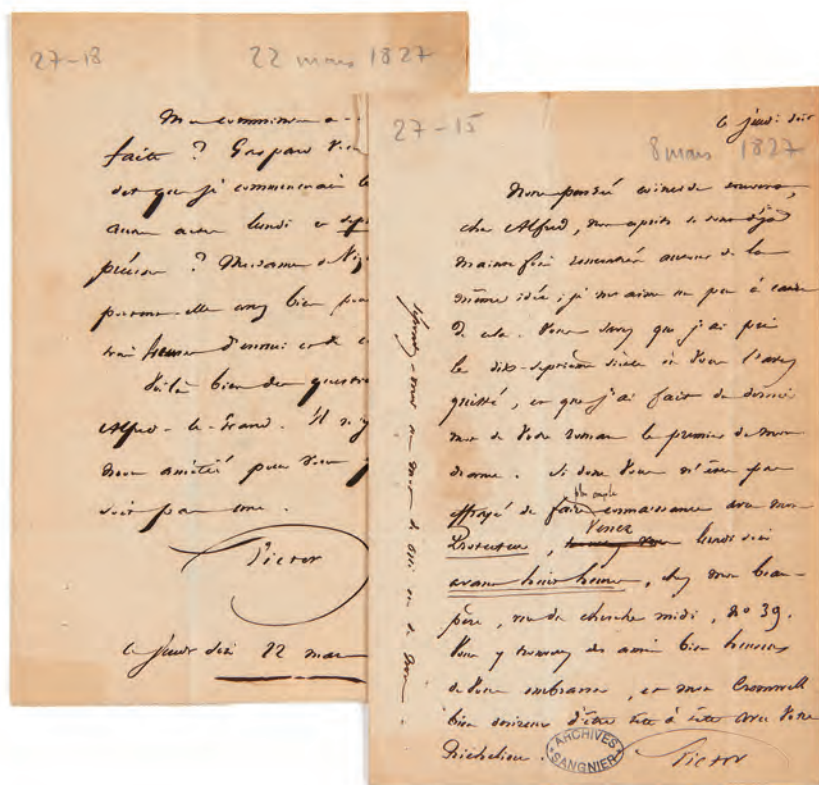 27-18
22 mars 1827
Ma commission a-
faite ? Gaspard vien
dit que je commencerai le
avant lundi et sept
précises ? Madame de Vig
pardonnera-elle assez bien pour
trois heures d'ennui
Voilà bien des questions
Alfred-le-Grand. Il n'y
mon amitié pour vous
soit pas une.
Victor
ce jeudi soir 22 mars
27-15
ce jeudi soir
8 mars 1827
Nos pensées coïncident souvent,
cher Alfred, nos esprits se sont déjà
maintes fois rencontrés autour de la
même idée ; je m'aime un peu à cause
de cela. Vous savez que j'ai pris
le dix-septième siècle où vous l'avez
quitté, et que j'ai fait du dernier
mot de votre roman le premier de mon
drame. Si donc vous n'êtes pas
plus ample
effrayé de faire connaissance avec mon
Venez
Protecteur, lundi soir
avant huit heures, chez mon beau-
père, rue du cherche midi, no 39.
Vous y trouverez des amis bien heureux
de vous embrasser, et mon Cromwell
bien désireux d'être tête à tête avec votre
Richelieu.
Victor
ARCHIVES SANGNIER
Répondez-moi un mot de oui ou de non.